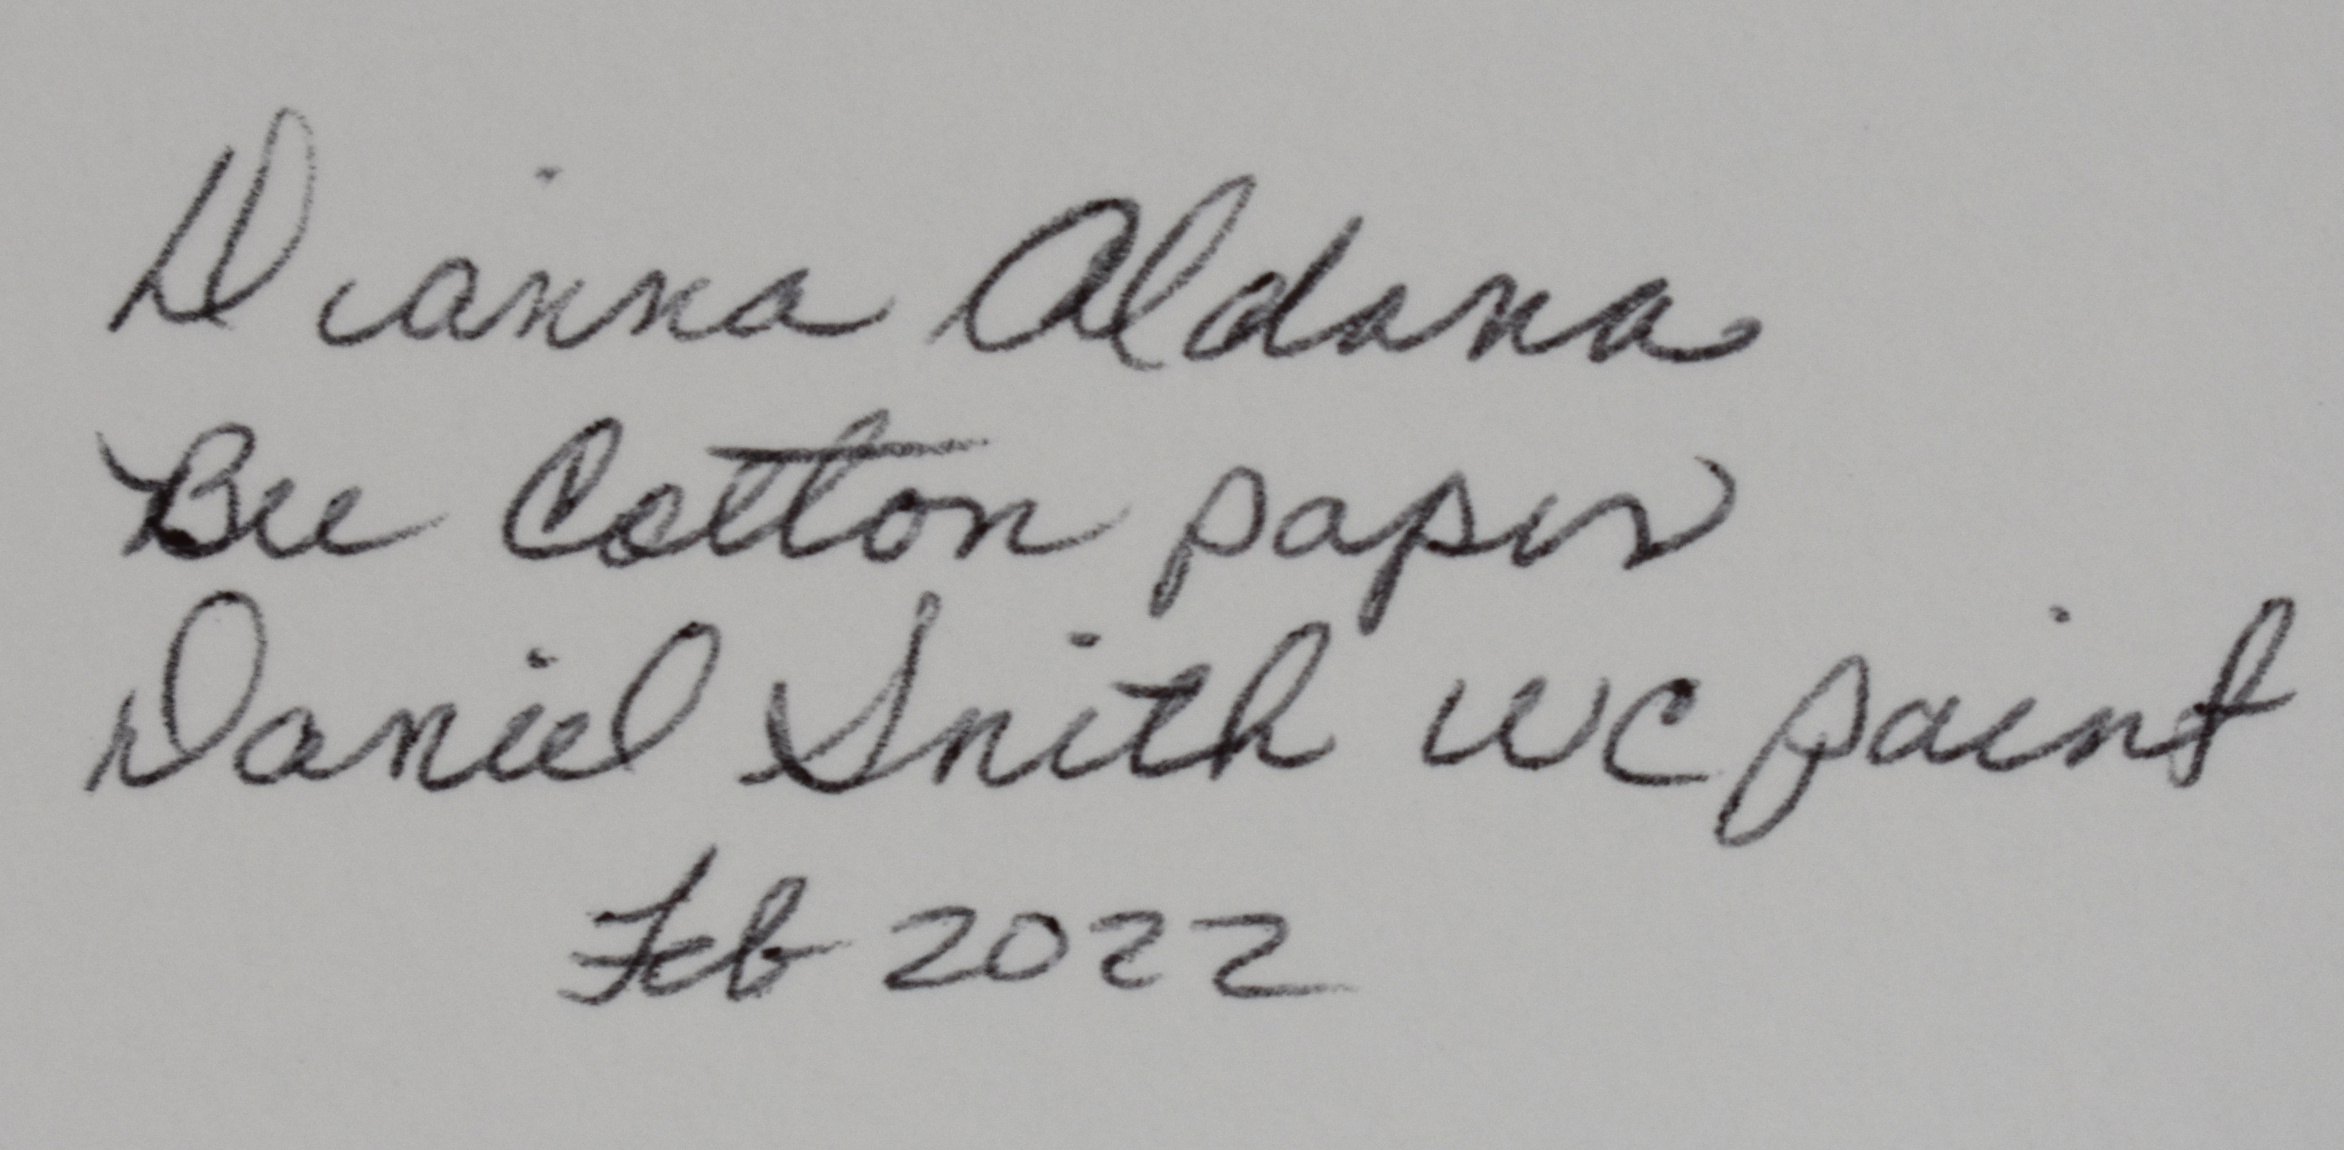 Dianna Aldana
Bee Cotton paper
Daniel Smith WC paint
Feb 2022